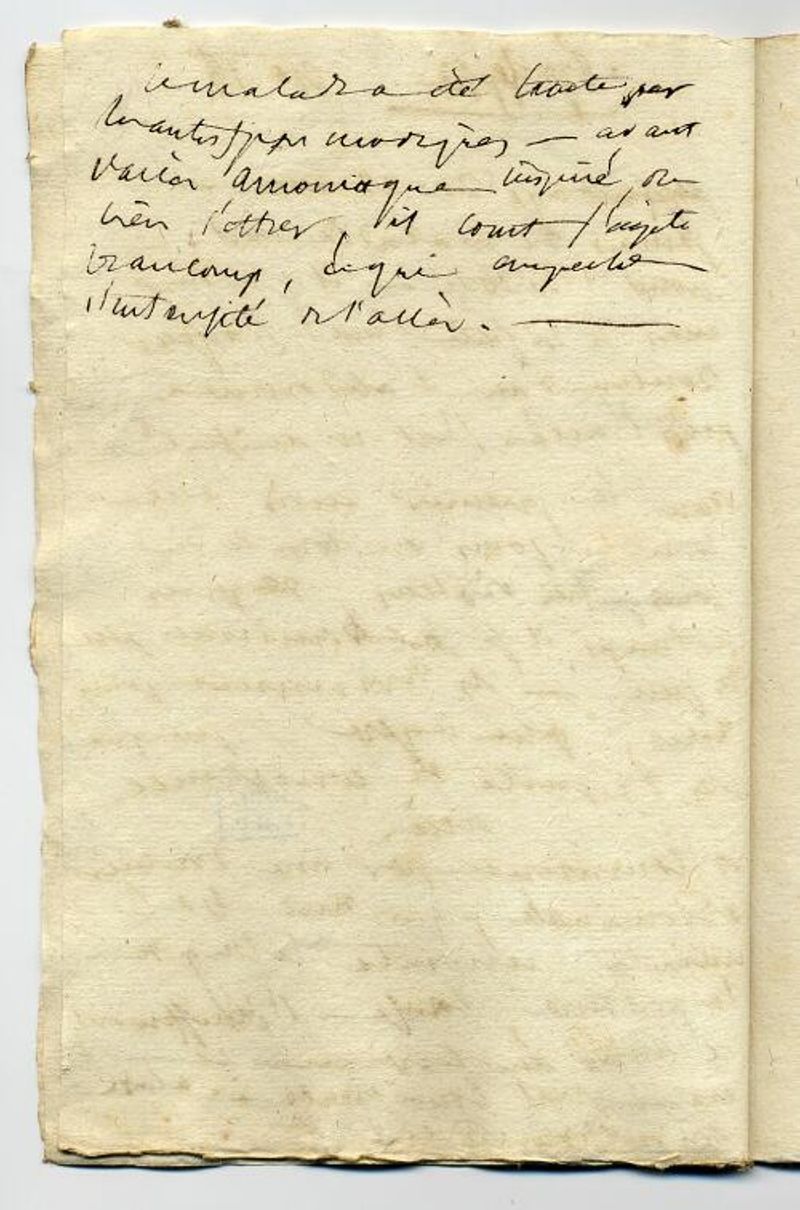 le malade a été traité par
les antispasmodiques — avant
l'accès amoniaque inspiré, ou
bien l'ether, il court s'agite
beaucoup, ce qui empeche
l'intensité de l'accès. —